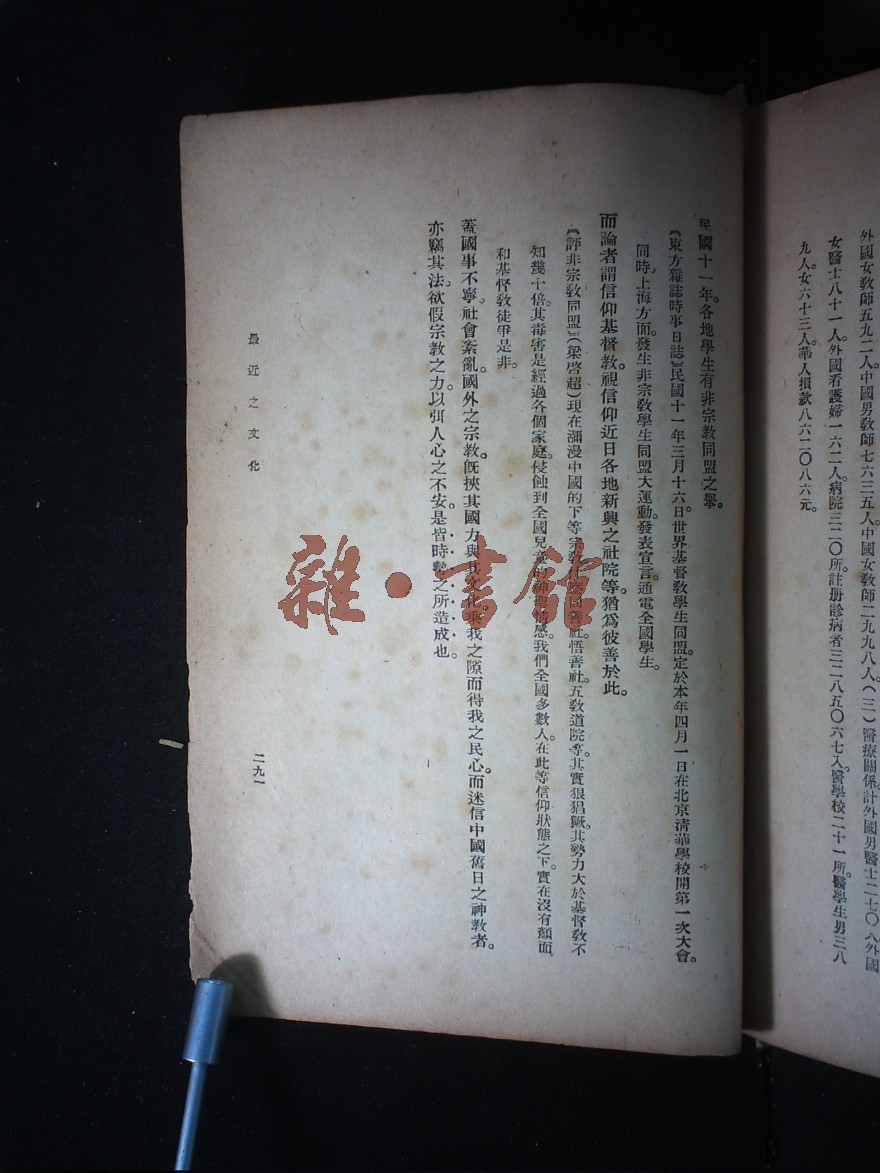 外國女教師五九二人。中國男教師七六三五人。中國女教師二九九八人。(三)醫療關係。計外國男醫士二七〇人。外國
女醫士八十一人。外國看護婦一六二人。病院三二〇所。註册診病者三二八五〇六七人。醫學校二十一所。醫學生男三八
九人。女六十三人。華人捐款八六二〇八六元。
民國十一年。各地學生有非宗教同盟之舉。
《東方雜誌時事日誌》民國十一年三月十六日。世界基督教學生同盟。定於本年四月一日在北京淸華學校開第一次大會。
同時。上海方面。發生非宗教學生同盟大運動。發表宣言。通電全國學生。
而論者謂信仰基督教。視信仰近日各地新興之社院等。猶爲彼善於此。
《評非宗教同盟》(梁啓超)現在瀰漫中國的下等宗教同善社。悟善社。五教道院等。其實狠猖獗。其勢力大於基督教不
知幾十倍。其毒害是經過各個家庭。侵蝕到全國兒童的神聖情感。我們全國多數人。在此等信仰狀態之下。實在沒有顏面
和基督教徒爭是非。
蓋國事不寧。社會紊亂。國外之宗教。旣挾其國力與其文化。乘我之隙而得我之民心。而迷信中國舊日之神教者。
亦竊其法。欲假宗教之力。以弭人心之不安。是皆時勢之所造成也。
最近之文化
二九一
雜·書館